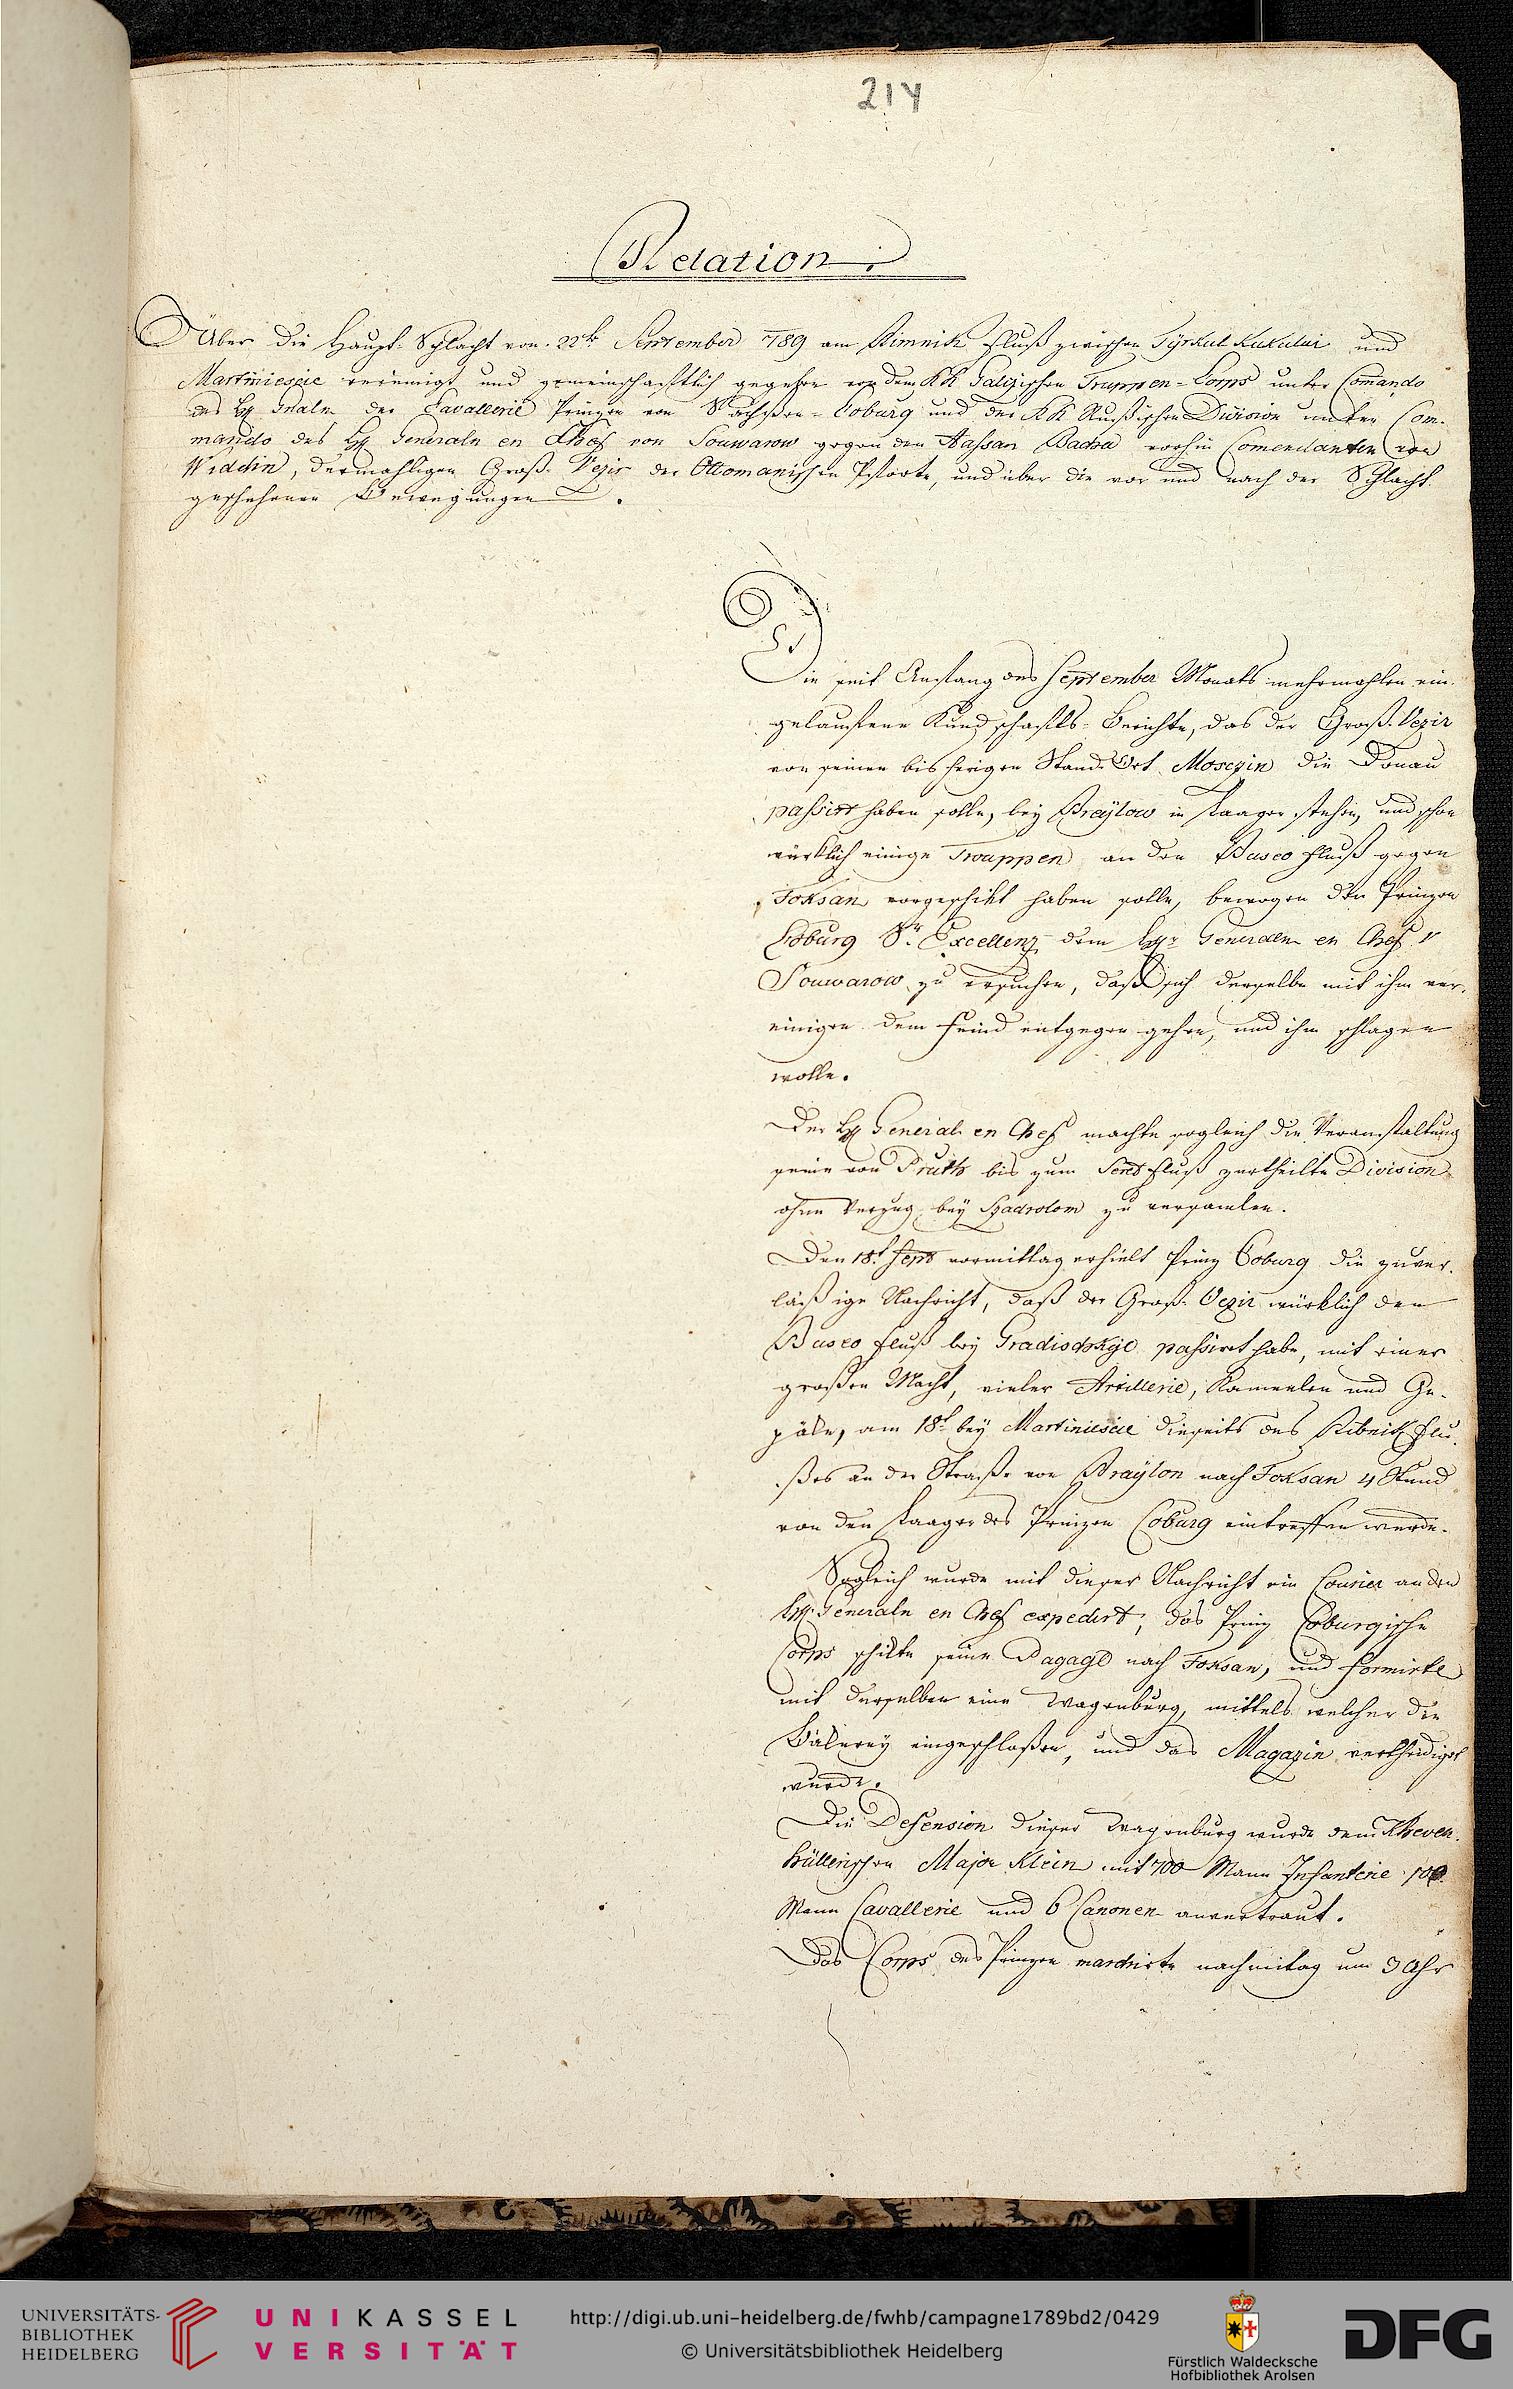 214
Relation.
Über die Haupt-Schlacht von 22t September 789 am Rimnik Fluß zwischen Tyrkul Kukului und
Martiniescie vereinigt und gemeinschaftlich gegeben von dem KK Galizischen Truppen-Corps unter Comando
des H Gnaln der Cavallerie Prinzen von Sachsen-Coburg und der KK Rußischen Division unter Com-
mando des H Generaln en Chef von Souwarow gegen den Hassan Bacha vorhin Comendanten von
Widdin, dermahligen Groß-Vezir der Ottomanischen Pforte, und über die vor und nach der Schlacht
geschehenen Bewegungen.
Die seit Anfang des September Monats mehrmahlen ein-
gelaufene Kundschafts-Berichte, das der Groß-Vezir
von seinen bisherigen Stand-Ort Mosczin die Donau
passirt haben solle, bey Braylow in Laager stehen, und schon
würklich einige Trouppen an den Buseo Fluß gegen
Foksan vorgeschikt haben solle, bewogen den Prinzen
Coburg Sr Excellenz dem Hr Generalen en Chef v
Souwarow zu ersuchen, daß sich derselbe mit ihm ver-
einigen dem Feind entgegen gehen, und ihn schlagen
wolle.
Der H General en Chef machte sogleich die Veranstaltung
seine von Pruth bis zum Sereth Fluß zertheilte Division
ohne Verzug bey zu versamlen.
Den 18t Sept vormittag erhielt Prinz Coburg die zuver-
läßige Nachricht, daß der Groß-Vezir würklich den
Buseo Fluß bey passirt habe, mit einer
großen Macht, vieler Artillerie, Kameelen und Ge-
päke, am 18t bey Martiniescie dieseits des Ribnik Flu-
ßes an der Straße von Braylon nach Foksan 4 Stund
von den Laager des Prinzen Coburg eintreffen werde.
Sogleich wurde mit dieser Nachricht ein Courier an den
H Generaln en Chef expedirt, das Prinz Coburgische
Corps schikte seine Bagage nach Foksan, und formirte
mit derselben eine Wagenburg, mittels welcher die
Bäkerey eingeschloßen, und das Magazin vertheidiget
wurde.
Die Defension dieser Wagenburg wurde dem Kheven-
hüllerischen Major Klein mit 700 Mann Infanterie 100
Mann Cavallerie und 6 Canonen anvertraut.
Das Corps des Prinzen marchirte nachmitag um 3 Uhr
UNIVERSITÄTS-
BIBLIOTHEK
HEIDELBERG
UNIKASSEL
VERSITÄT
http://digi.ub.uni-heidelberg.de/fwhb/campagne1789bd2/0429
© Universitätsbibliothek Heidelberg
Fürstlich Waldecksche
Hofbibliothek Arolsen
DFG